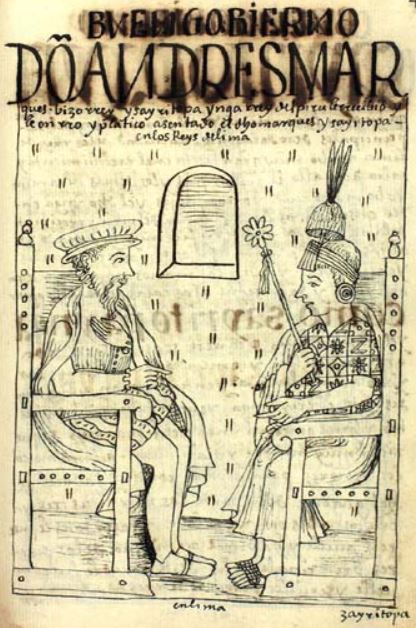 BVEN GOBIERNO
DŌ ANDRES MAR
ques. bizorrey. y sayritopa ynga rrey del piru le rrecibio y
le onrro y platico asentado el dho marques. y sayritopa-
en los Reys de lima
en lima
zayritopa